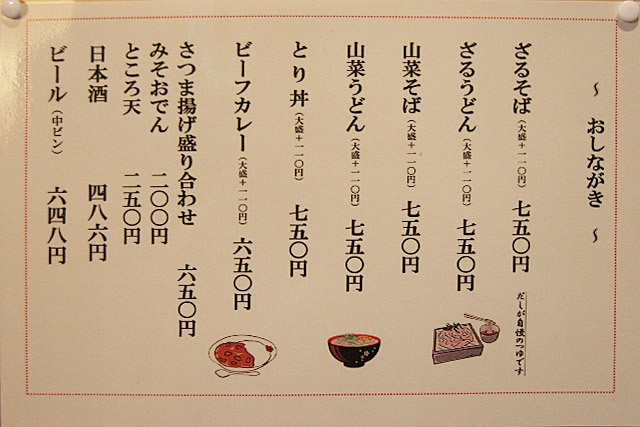 ～ おしながき ～
ざるそば（大盛＋一一〇円） 七五〇円
だしが自慢のつゆです
ざるうどん（大盛＋一一〇円） 七五〇円
山菜そば（大盛＋一一〇円） 七五〇円
山菜うどん（大盛＋一一〇円） 七五〇円
とり丼（大盛＋一一〇円） 七五〇円
ビーフカレー（大盛＋一一〇円） 六五〇円
さつま揚げ盛り合わせ 六五〇円
みそおでん 二〇〇円
ところ天 二五〇円
日本酒 四八六円
ビール（中ビン） 六四八円